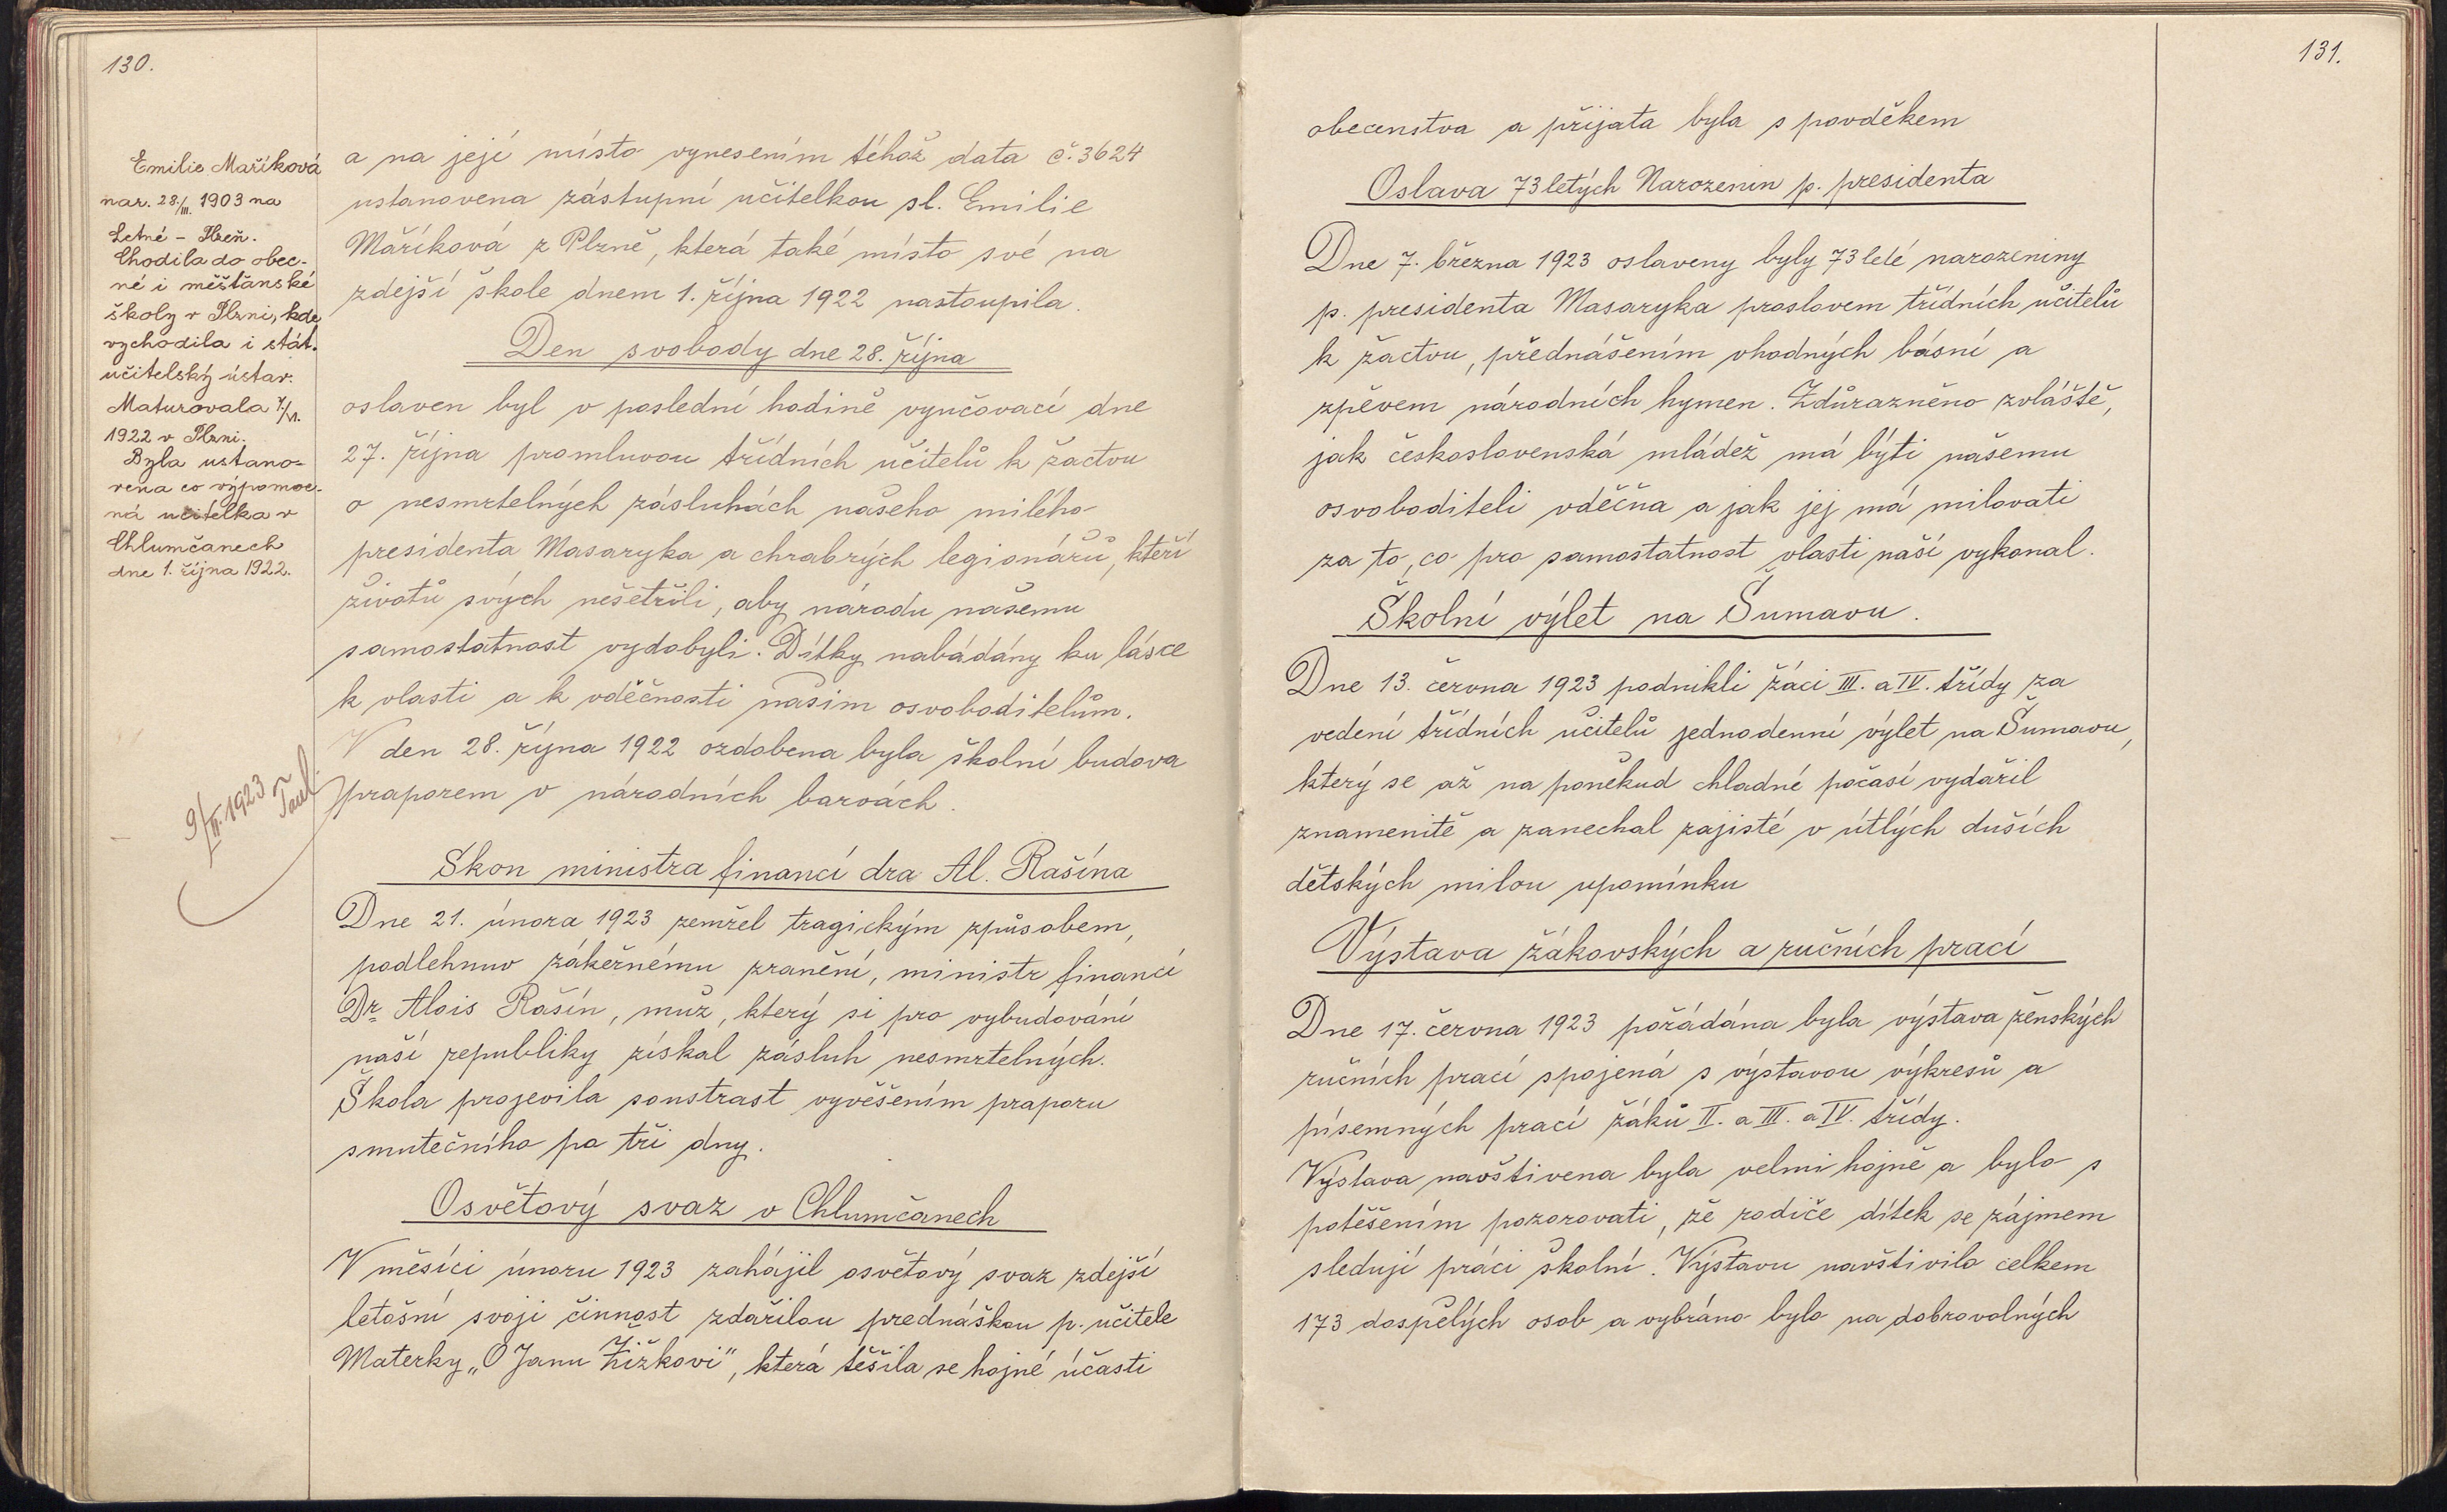 130.
Emilie Maříková
nar. 28./III. 1903 na
Letné – Plzeň.
Chodila do obec-
né i měšťanské
školy v Plzni, kde
vychodila i stát.
učitelský ústav.
Maturovala 7./VI.
1922 v Plzni.
Byla ustano-
vena co výpomoc-
ná učitelka v
Chlumčanech
dne 1. října 1922.
9/II. 1923
a na její místo vynesením téhož data č. 3624
ustanovena zástupní učitelkou sl. Emilie
Maříková z Plzně, která také místo své na
zdejší škole dnem 1. října 1922 nastoupila.
Den svobody dne 28. října
oslaven byl v poslední hodině vyučovací dne
27. října promluvou třídních učitelů k žactvu
o nesmrtelných zásluhách našeho milého
presidenta Masaryka a chrabrých legionářů, kteří
životů svých nešetřili, aby národu našemu
samostatnost vydobyli. Dítky nabádány ku lásce
k vlasti a k vděčnosti našim osvoboditelům.
V den 28. října 1922 ozdobena byla školní budova
praporem v národních barvách.
Skon ministra financí dra Al. Rašína
Dne 21. února 1923 zemřel tragickým způsobem,
podlehnuv zákeřnému zranění, ministr financí
Dr. Alois Rašín, muž, který si pro vybudování
naší republiky získal zásluh nesmrtelných.
Škola projevila soustrast vyvěšením praporu
smutečního po tři dny.
Osvětový svaz v Chlumčanech
V měsíci únoru 1923 zahájil osvětový svaz zdejší
letošní svoji činnost zdařilou přednáškou p. učitele
Materky „O Janu Žižkovi“, která těšila se hojné účasti
131.
obecenstva a přijata byla s povděkem
Oslava 73letých Narozenin p. presidenta
Dne 7. března 1923 oslaveny byly 73leté narozeniny
p. presidenta Masaryka proslovem třídních učitelů
k žactvu, přednášením vhodných básní a
zpěvem národních hymen. Zdůrazněno zvláště,
jak československá mládež má býti našemu
osvoboditeli vděčna a jak jej má milovati
za to, co pro samostatnost vlasti naší vykonal.
Školní výlet na Šumavu.
Dne 13. června 1923 podnikli žáci III. a IV. třídy za
vedení třídních učitelů jednodenní výlet na Šumavu,
který se až na poněkud chladné počasí vydařil
znamenitě a zanechal zajisté v útlých duších
dětských milou upomínku
Výstava žákovských a ručních prací
Dne 17. června 1923 pořádána byla výstava ženských
ručních prací spojená s výstavou výkresů a
písemných prací žáků II. a III. a IV. třídy.
Výstava navštívena byla velmi hojně a bylo s
potěšením pozorovati, že rodiče dítek se zájmem
sledují práci školní. Výstavu navštívilo celkem
173 dospělých osob a vybráno bylo na dobrovolných